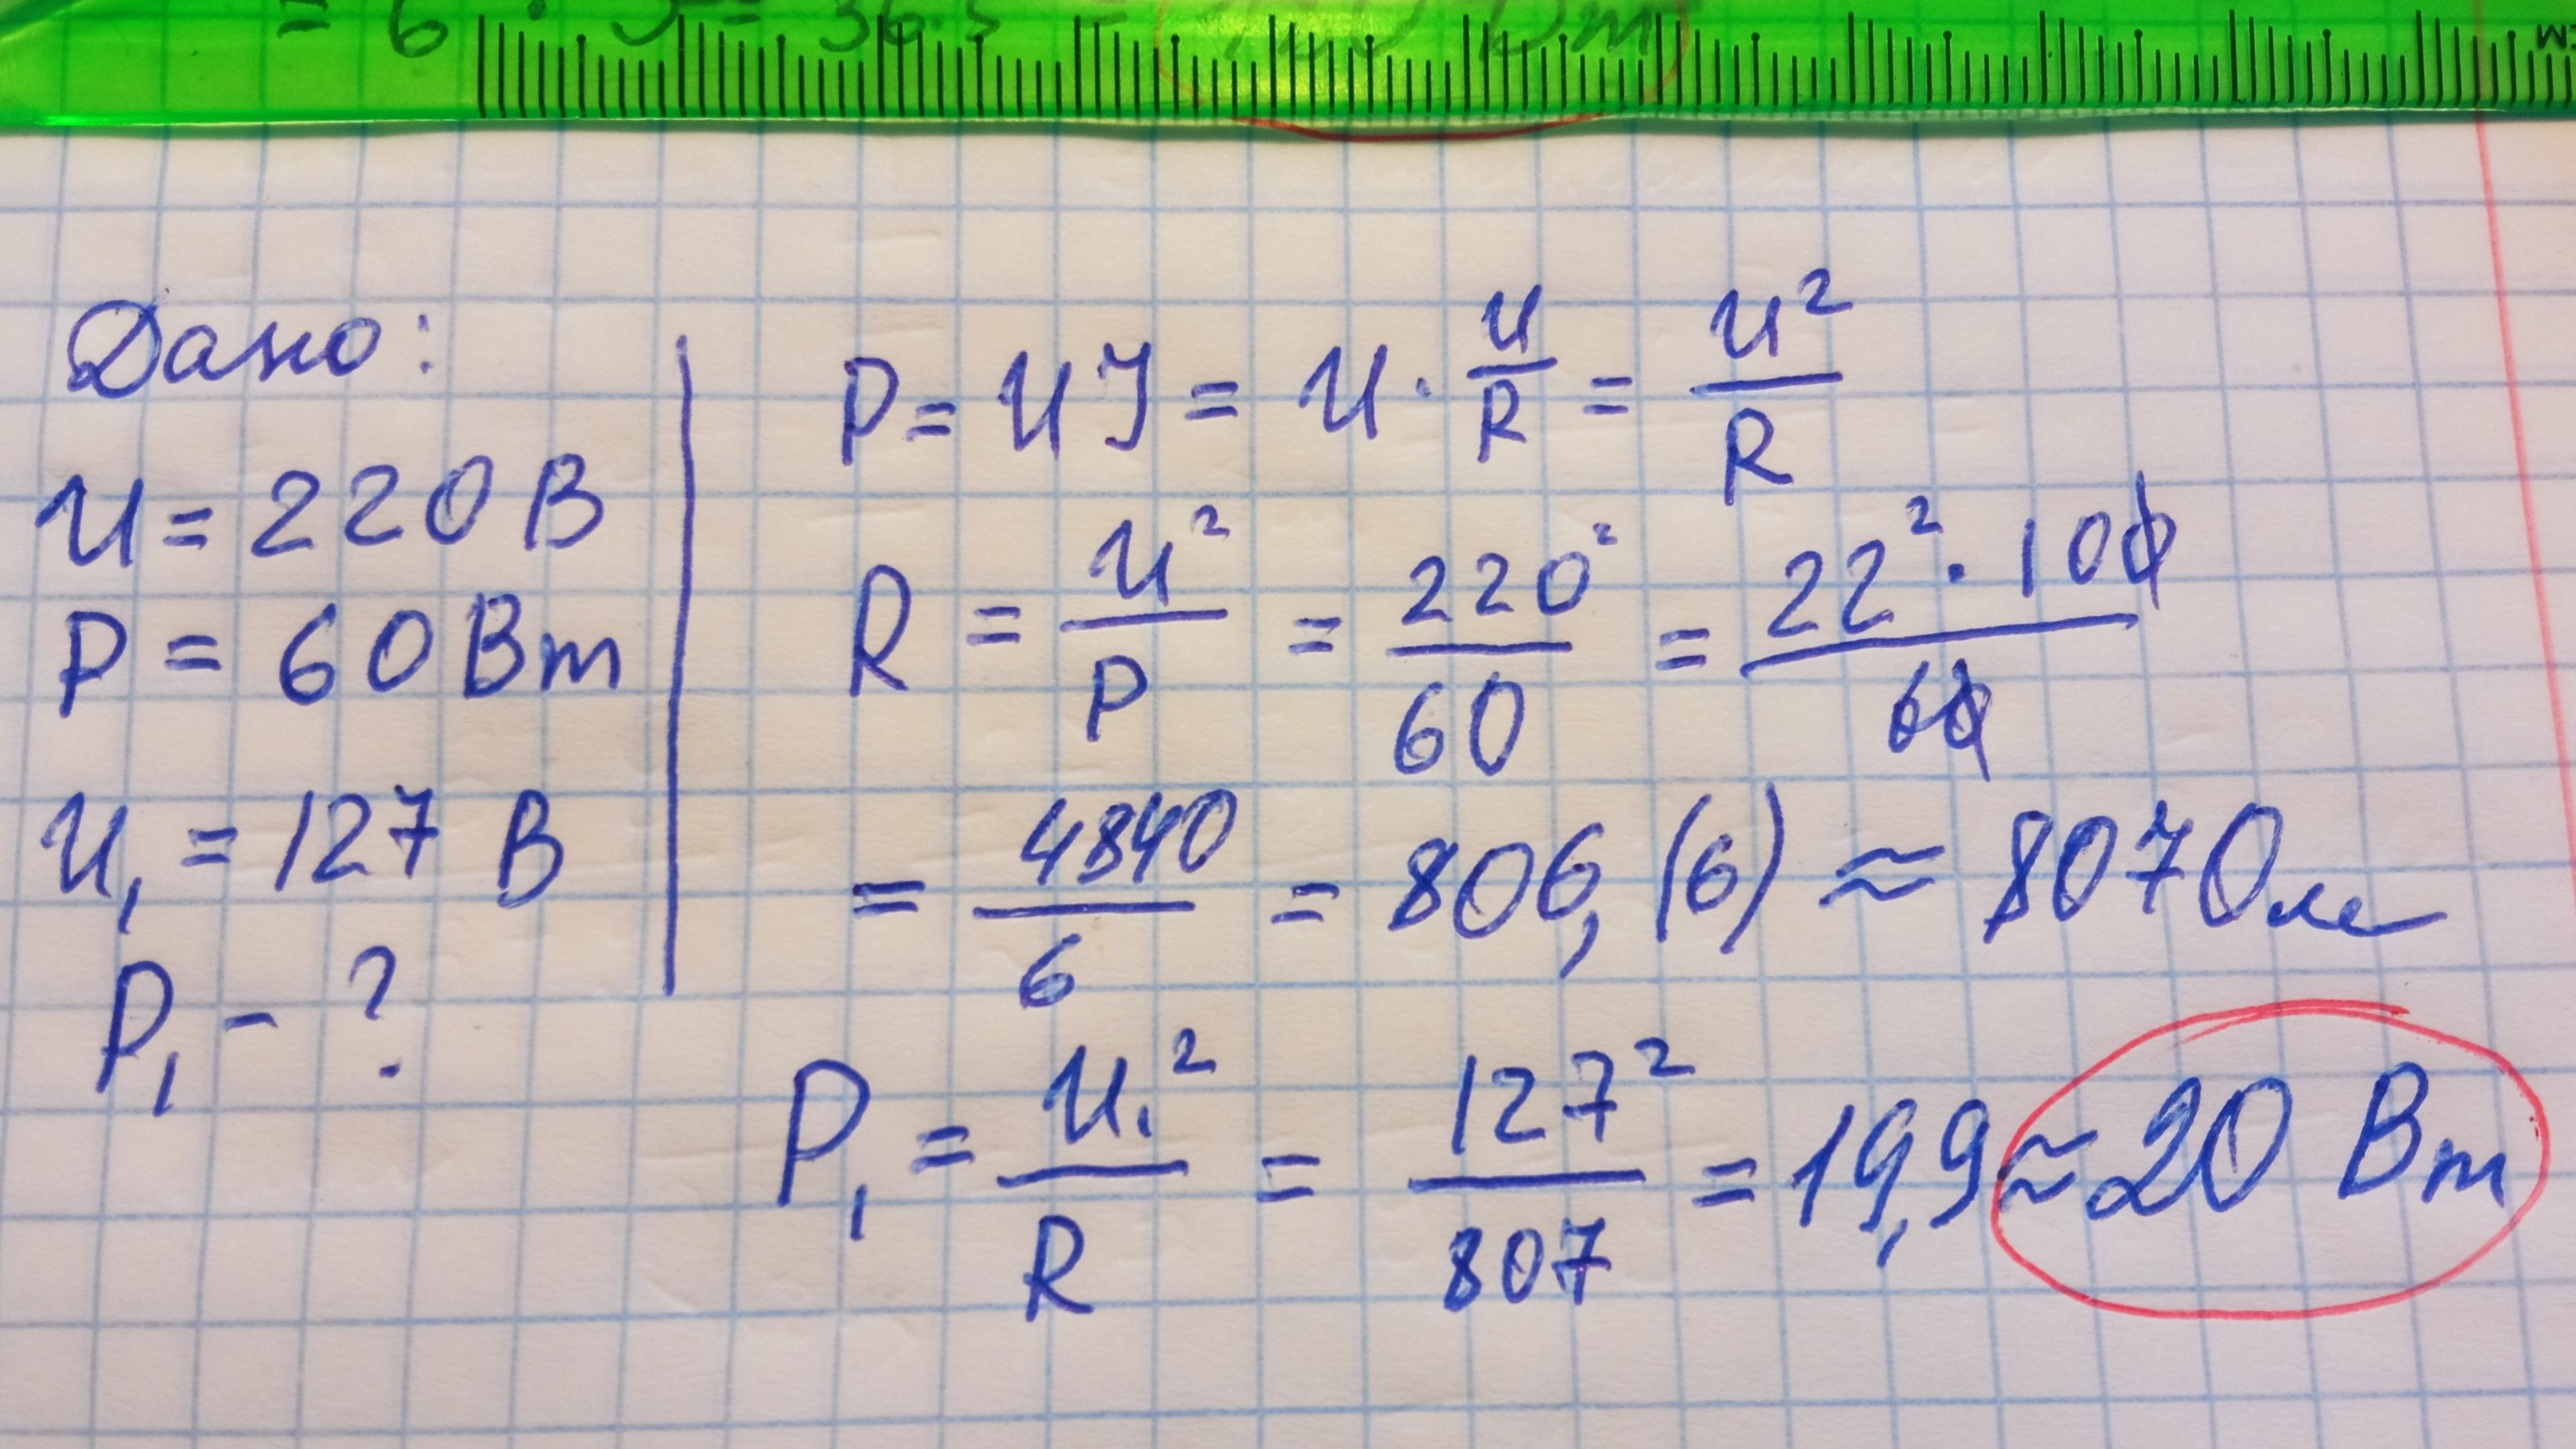 Дано:
U = 220 В
P = 60 Вт
U₁ = 127 В
P₁ - ?
P = UI = U · U/R = U²/R
R = U²/P = 220²/60 = 22² · 100/60
= 4840/6 = 806,(6) ≈ 807 Ом
P₁ = U₁²/R = 127²/807 = 19,9 ≈ 20 Вт